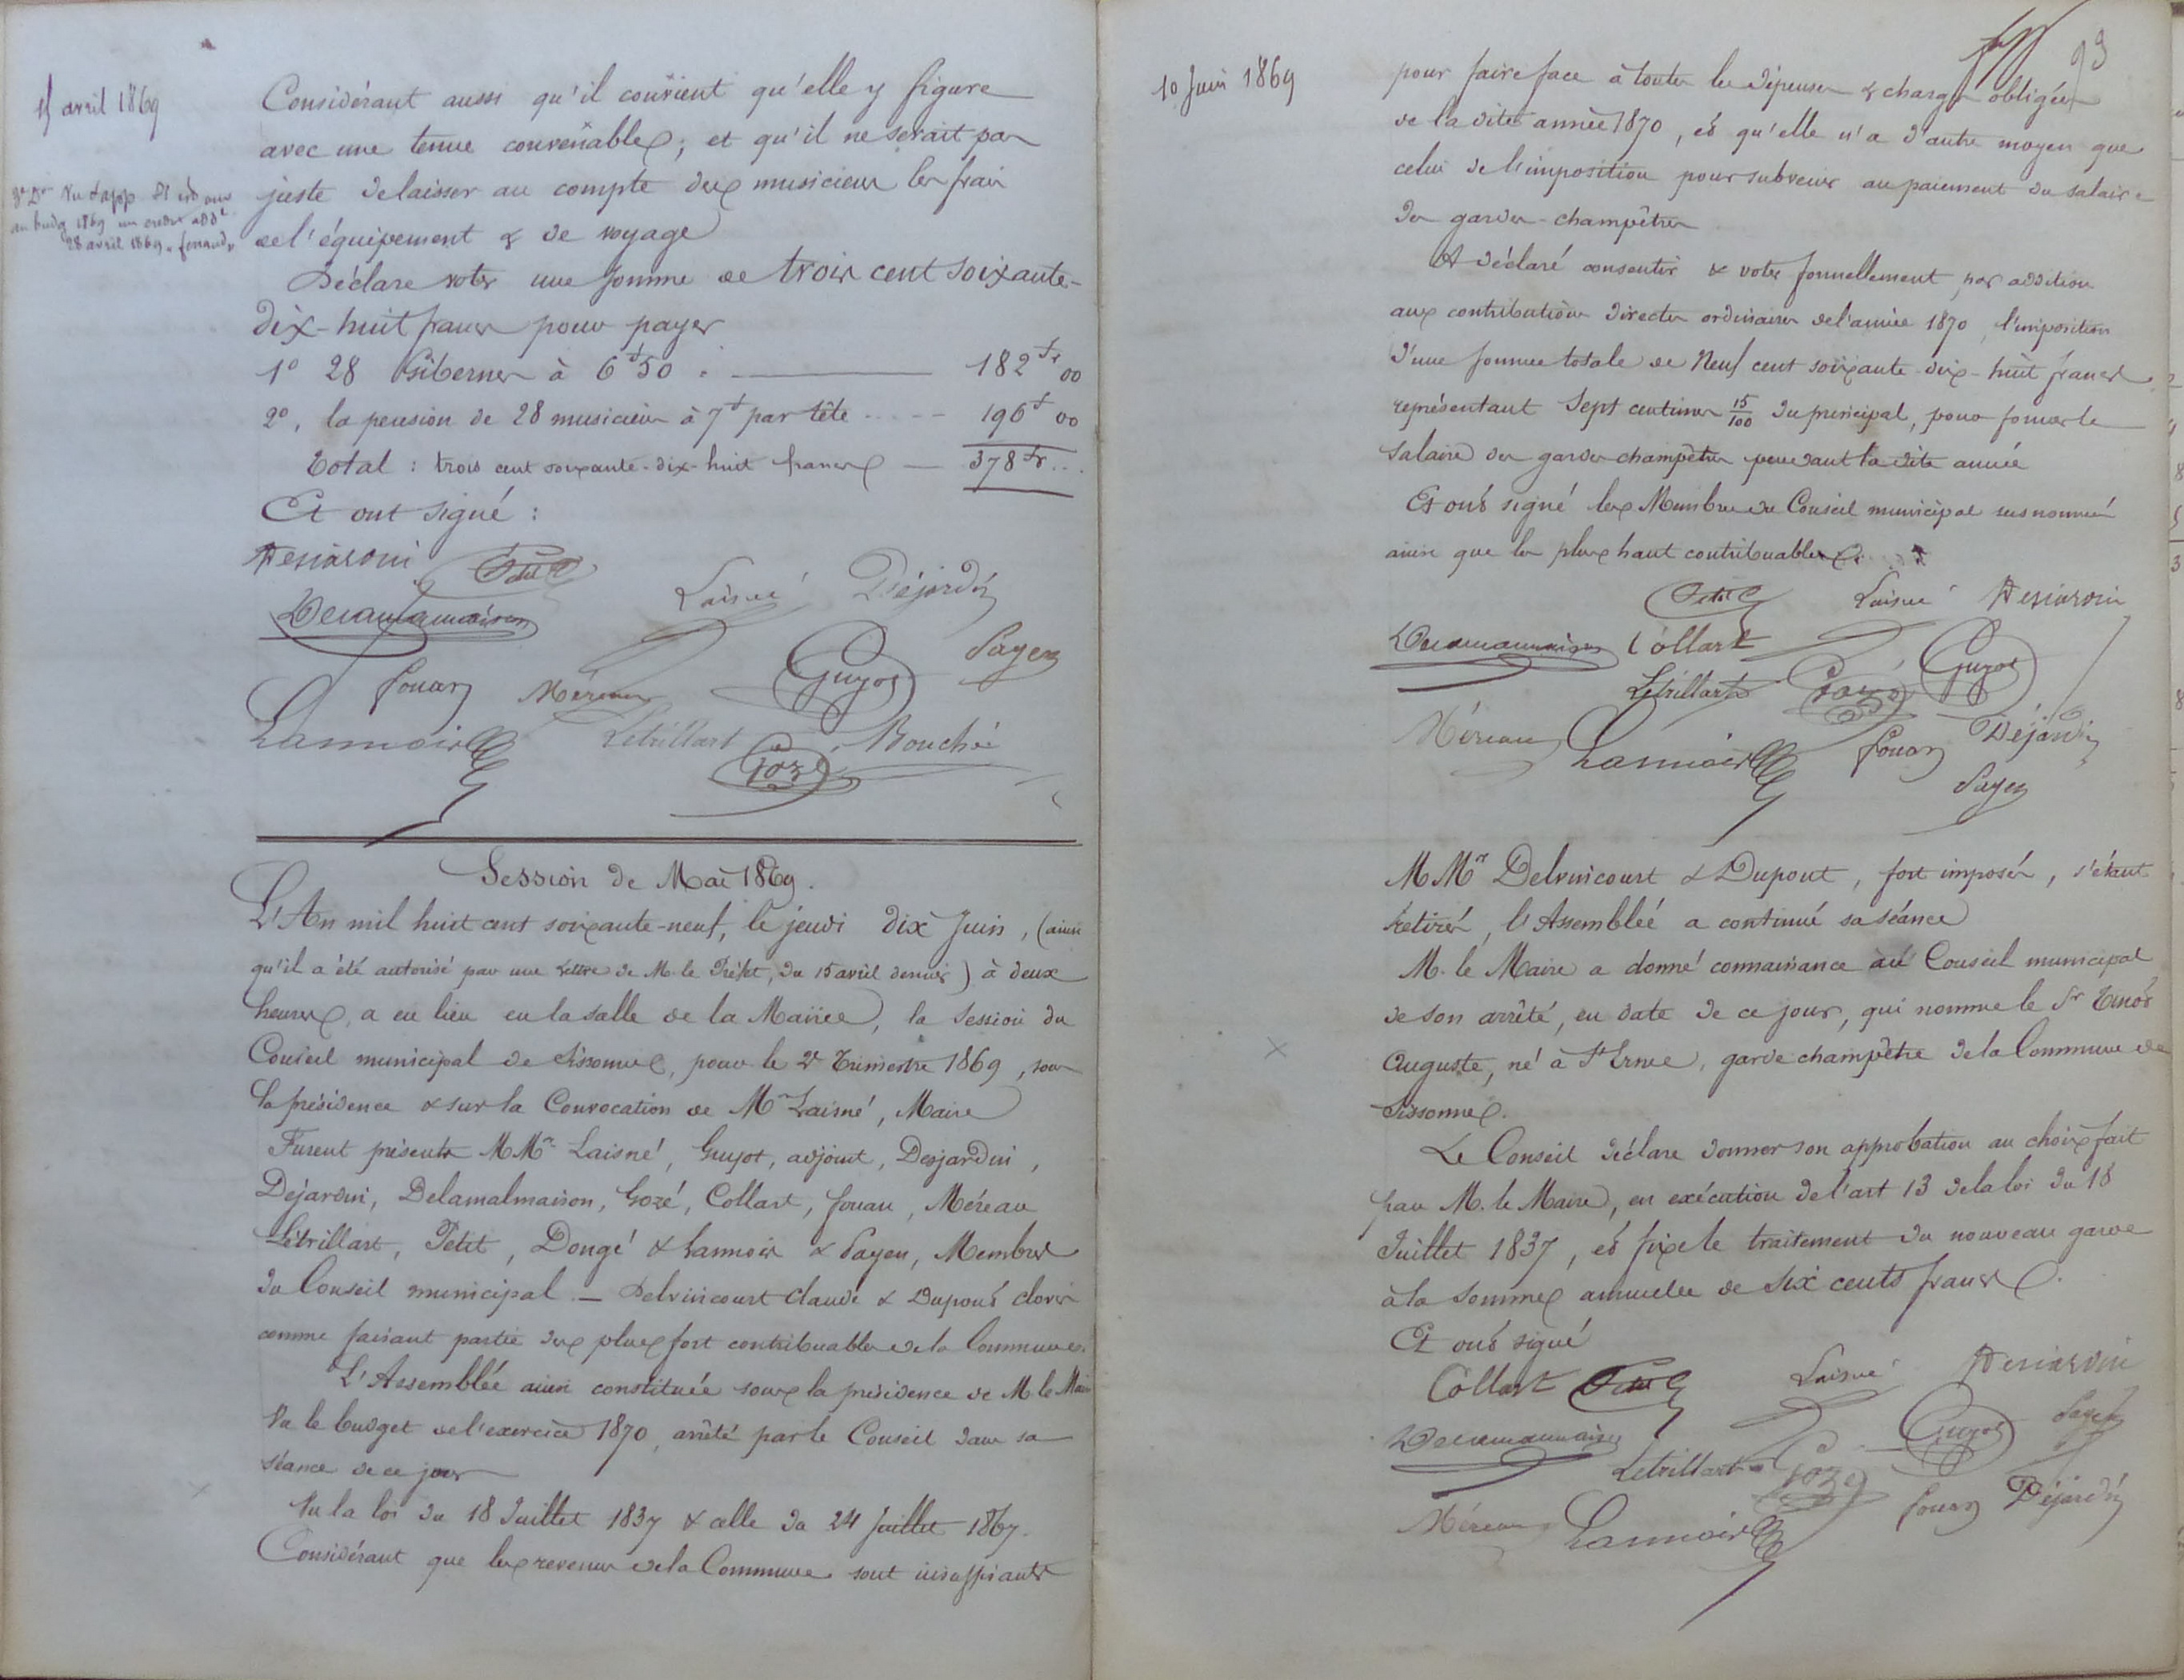 15 avril 1869
Considérant aussi qu'il convient qu'elle y figure
avec une tenue convenable; et qu'il ne serait pas
juste de laisser au compte des musiciens les frais
de l'équipement & de voyage
Vu & app
au budg 1869 un crédit addel
28 avril 1869.
Déclare voter une somme de trois cent soixante-
dix-huit francs pour payer
1º 28 Gibernes à 6f50 . — 182fr 00
2º, la pension de 28 musiciens à 7f par tête ..... 196f 00
Total : trois cent soixante-dix-huit francs — 378fr...
Et ont signé :
Desjardin Petit
Delamalmaison Laisné Déjardin
Fouan Méreau Guyot Payen
Lannois Létrillart Gozé Bouché
Session de Mai 1869.
L'An mil huit cent soixante-neuf, le jeudi dix Juin, (ainsi
qu'il a été autorisé par une lettre de M. le Préfet, du 15 avril dernier) à deux
heures, a eu lieu en la salle de la Mairie, la Session du
Conseil municipal de Sissonne, pour le 2e Trimestre 1869, sous
la présidence & sur la Convocation de Mr Laisné, Maire
Furent présents MMrs Laisné, Guyot, adjoint, Desjardin,
Déjardin, Delamalmaison, Gozé, Collart, fouan, Méreau
Létrillart, Petit, Dongé & Lannois & Payen, Membres
du Conseil municipal — Delvincourt Claude & Dupont clovis
comme faisant partie des plus fort contribuables de la Commune.
L'Assemblée ainsi constituée sous la présidence de M. le Maire
Vu le budget de l'exercice 1870, arrêté par le Conseil dans sa
séance de ce jour
Vu la loi du 18 Juillet 1837 & celle du 24 Juillet 1867.
Considérant que les revenus de la Commune sont insuffisants
93
10 Juin 1869
pour faire face à toutes les dépenses & charges obligées
de la dite année 1870, et qu'elle n'a d'autre moyen que
celui de l'imposition pour subvenir au paiement du salaire
des gardes-champêtres
A déclaré consentir & voter formellement, par addition
aux contributions directes ordinaires de l'année 1870, l'imposition
d'une somme totale de Neuf cent soixante-dix-huit francs
représentant Sept centimes 15/100 du principal, pour former le
salaire des gardes champêtres pendant la dite année
Et ont signé les Membres du Conseil municipal susnommés
ainsi que les plus haut contribuables.
Petit Laisné Desjardin
Delamalmaison Collart
Létrillart Gozé Guyot
Méreau Lannois Fouan Déjardin
Payen
MMrs Delvincourt & Dupont, fort imposés, s'étant
retirés, l'Assemblée a continué sa séance
M. le Maire a donné connaissance au Conseil municipal
de son arrêté, en date de ce jour, qui nomme le Sr
Auguste, né à St Erme, garde champêtre de la Commune de
Sissonne.
Le Conseil déclare donner son approbation au choix fait
par M. le Maire, en exécution de l'art 13 de la loi du 18
Juillet 1837, et fixe le traitement du nouveau garde
à la somme annuelle de Six cents francs.
Et ont signé
Collart Petit Laisné Desjardin
Delamalmaison Guyot Payen
Létrillart Gozé
Méreau Lannois Fouan Déjardin